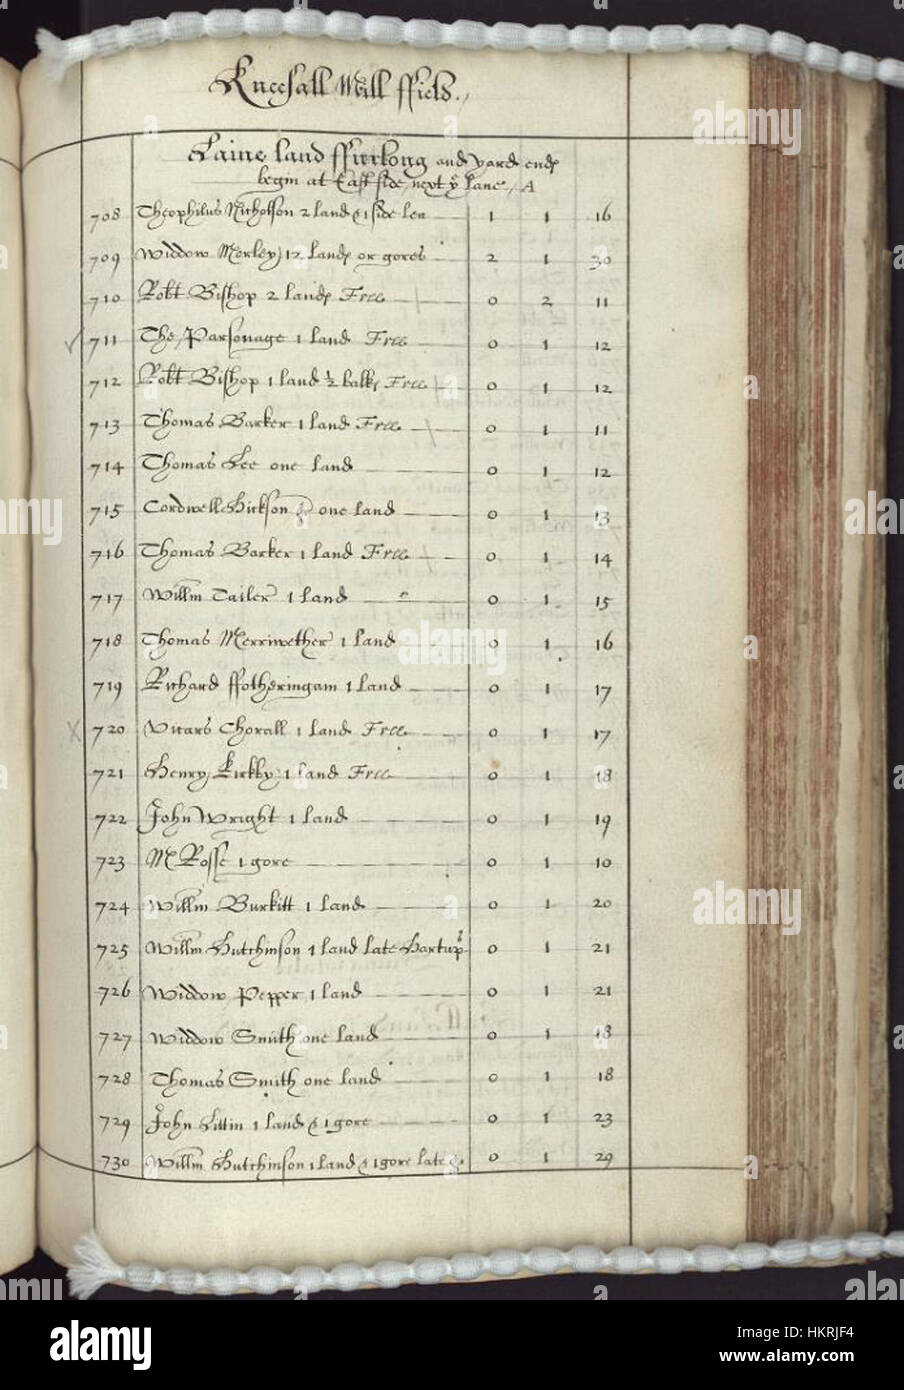 Kneesall Mill ffield.
Laine land ffurlong and yard ends
begin at East side next yᵉ lane, A
708 Theophilus Nicholson 2 land & 1 side lea 1 1 16
709 Widdow Morley 12 lands or gores 2 1 30
710 Robt Bishop 2 lands Free 0 2 11
711 The Parsonage 1 land Free 0 1 12
712 Robt Bishop 1 land ½ balk Free 0 1 12
713 Thomas Barker 1 land Free 0 1 11
714 Thomas Lee one land 0 1 12
715 Cordwell Hickson one land 0 1 13
716 Thomas Barker 1 land Free 0 1 14
717 Willm Tailer 1 land 0 1 15
718 Thomas Merriwether 1 land 0 1 16
719 Richard ffotheringam 1 land 0 1 17
720 Vicars Chorall 1 land Free 0 1 17
721 Henry Kirkby 1 land Free 0 1 18
722 John Wright 1 land 0 1 19
723 Mr Rosse 1 gore 0 1 10
724 Willm Burkitt 1 land 0 1 20
725 Willm Hutchinson 1 land late Hartups 0 1 21
726 Widdow Pepper 1 land 0 1 21
727 Widdow Smith one land 0 1 18
728 Thomas Smith one land 0 1 18
729 John Littin 1 land & 1 gore 0 1 23
730 Willm Hutchinson 1 land & 1 gore late 0 1 29
alamy
alamy
Image ID: HKRJF4
www.alamy.com